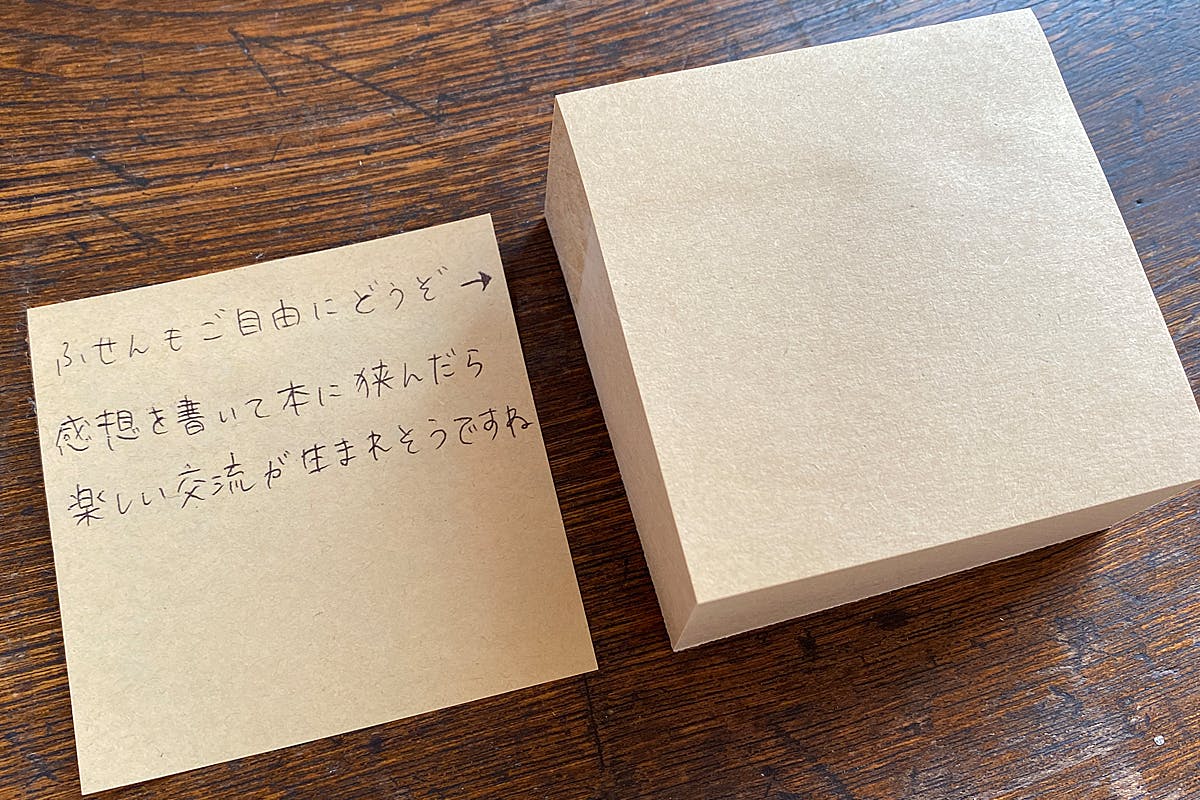 ふせんもご自由にどうぞ→
感想を書いて本に挟んだら
楽しい交流が生まれそうですね